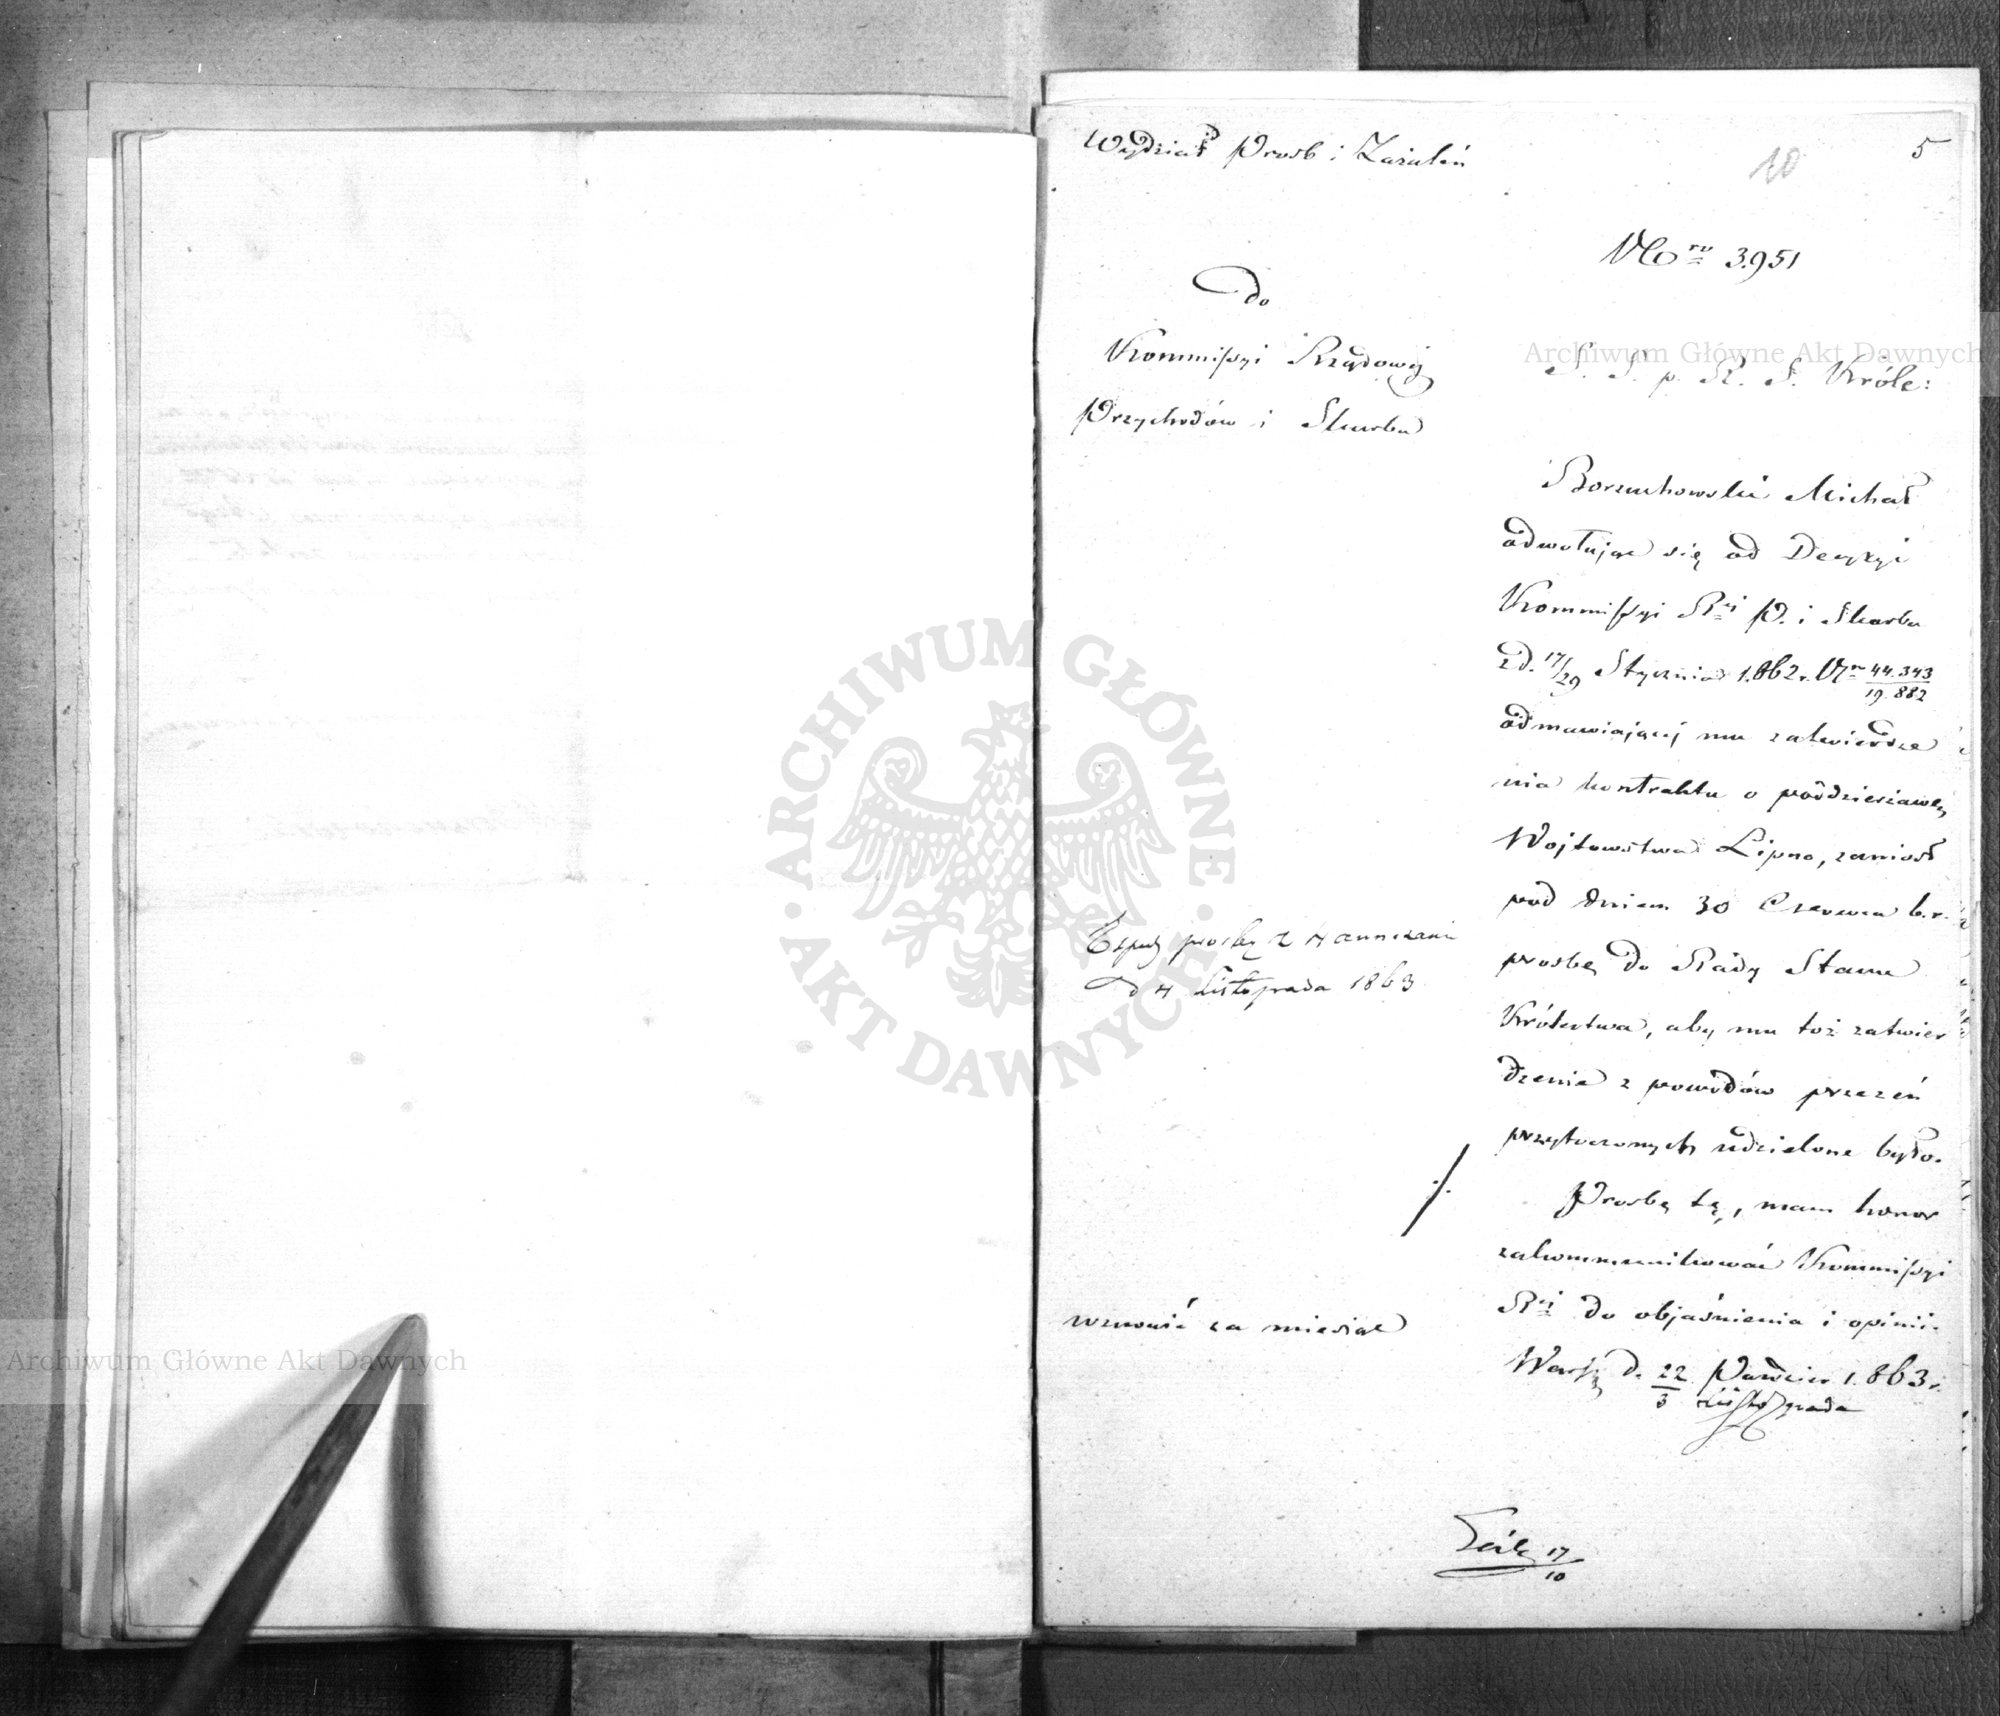 Wydział Prośb i Zażaleń
10
5
Nro 3.951
Do
Kommissyi Rządowej
Przychodów i Skarbu
S. S. p. R. S. Króle:
Borzuchowski Michał
odwołując się od Decyzyi
Kommissyi R-ej P. i Skarbu
z d. 17/29 Stycznia 1.862 r. Nr 44.343/19.882
odmawiającej mu zatwierdze
nia kontraktu o poddzierżawę
Wójtowstwa Lipno, zaniosł
pod dniem 30 Czerwca b.r.
prosbę do Rady Stanu
Królestwa, aby mu toż zatwier
dzenie z powodów przezeń
przytoczonych udzielone było.
Prosbę tę, mam honor
zakommunikować Kommissyi
R-ej do objaśnienia i opinii.
Warsz. d. 22/3 Paździer/Listopada 1.863 r.
prosbę z 4
d 4 Listopada 1863
wznowić za miesiąc
17/10
Archiwum Główne Akt Dawnych
Archiwum Główne Akt Dawnych
ARCHIWUM GŁÓWNE
· AKT DAWNYCH ·